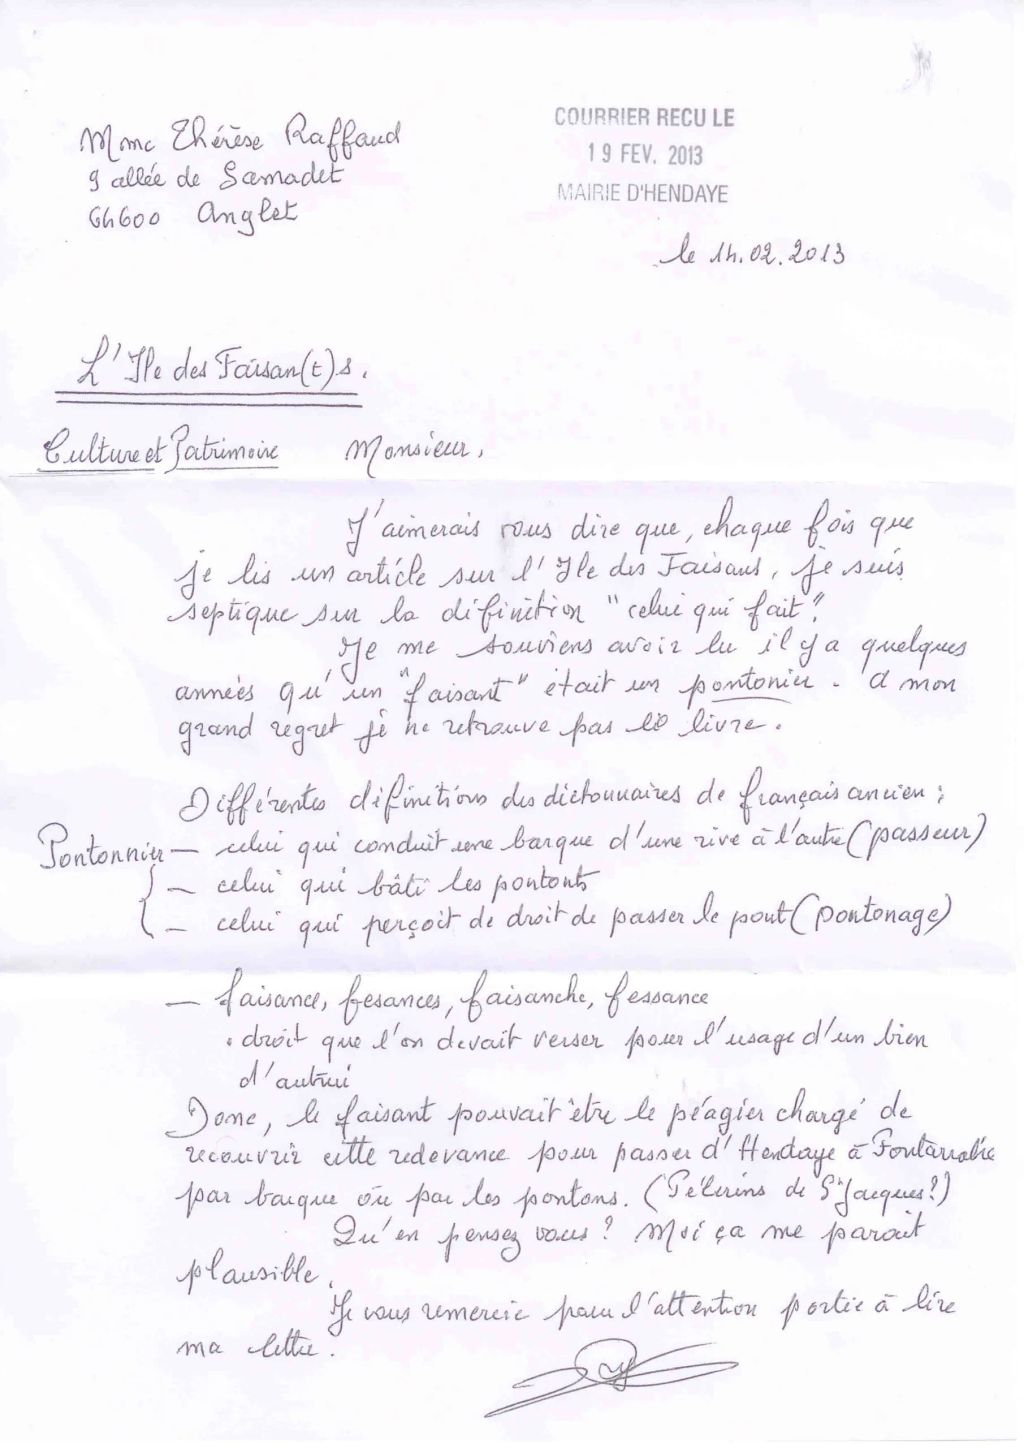 Mme Thérèse Raffaud
9 allée de Samadet
64600 Anglet
COURRIER RECU LE
19 FEV. 2013
MAIRIE D'HENDAYE
le 14.02.2013
L'Ile des Faisan(t)s.
Culture et Patrimoine
Monsieur,
J'aimerais vous dire que, chaque fois que
je lis un article sur l'Ile des Faisans, je suis
septique sur la définition "celui qui fait".
Je me souviens avoir lu il y a quelques
années qu'un "faisant" était un pontonier. A mon
grand regret je ne retrouve pas le livre.
Différentes définitions des dictonnaires de français ancien :
Pontonnier — celui qui conduit une barque d'une rive à l'autre (passeur)
— celui qui bâti les pontonts
— celui qui perçoit de droit de passer le pont (pontonage)
— faisance, fesances, faisanche, fessance
. droit que l'on devait verser pour l'usage d'un bien
d'autrui
Donc, le faisant pouvait être le péagier chargé de
recouvrir cette redevance pour passer d'Hendaye à Fontarrabie
par barque où par les pontons. (Pélerins de St Jacques ?)
Qu'en pensez vous ? Moi ça me parait
plausible.
Je vous remercie pour l'attention portée à lire
ma lettre.